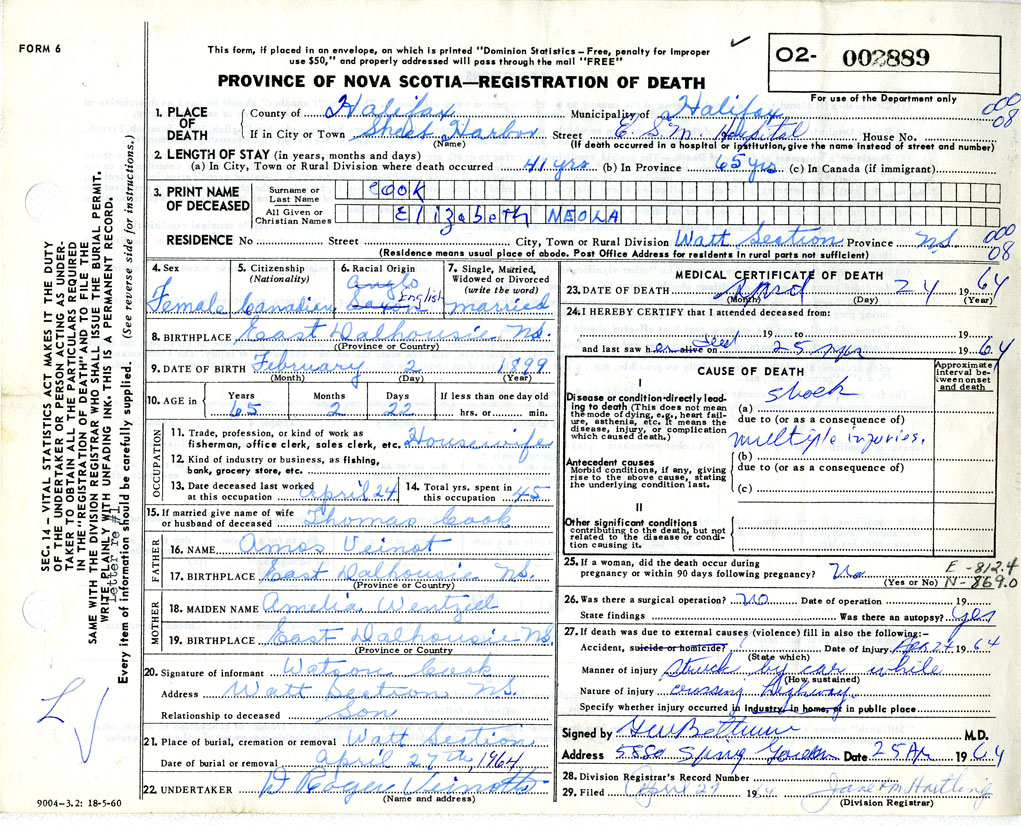 FORM 6
This form, if placed in an envelope, on which is printed "Dominion Statistics – Free, penalty for improper
use $50," and properly addressed will pass through the mail "FREE"
PROVINCE OF NOVA SCOTIA—REGISTRATION OF DEATH
O2- 002889
For use of the Department only
000
08
SEC. 14 – VITAL STATISTICS ACT MAKES IT THE DUTY
OF THE UNDERTAKER OR PERSON ACTING AS UNDER-
TAKER TO OBTAIN ALL THE PARTICULARS REQUIRED
IN THE "REGISTRATION OF DEATH" AND TO FILE THE
SAME WITH THE DIVISION REGISTRAR WHO SHALL ISSUE THE BURIAL PERMIT.
WRITE PLAINLY WITH UNFADING INK. THIS IS A PERMANENT RECORD.
Letter re #1
Every item of information should be carefully supplied. (See reverse side for instructions.)
1. PLACE OF DEATH
County of Halifax Municipality of Halifax
If in City or Town Sheet Harbor Street E.S.M. Hospital House No.
(Name) (If death occurred in a hospital or institution, give the name instead of street and number)
2. LENGTH OF STAY (in years, months and days)
(a) In City, Town or Rural Division where death occurred 41 yrs (b) In Province 65 yrs (c) In Canada (if immigrant)
3. PRINT NAME OF DECEASED
Surname or Last Name COOK
All Given or Christian Names Elizabeth NEOLA
RESIDENCE No Street City, Town or Rural Division Watt Section Province N.S.
000
08
(Residence means usual place of abode. Post Office Address for residents in rural parts not sufficient)
4. Sex Female
5. Citizenship (Nationality) Canadian
6. Racial Origin Anglo Saxon English
7. Single, Married, Widowed or Divorced (write the word) married
8. BIRTHPLACE East Dalhousie N.S.
((Province or Country)
9. DATE OF BIRTH February 2 1899
(Month) (Day) (Year)
10. AGE in Years 65 Months 2 Days 22 If less than one day old hrs. or min.
OCCUPATION
11. Trade, profession, or kind of work as
fisherman, office clerk, sales clerk, etc. Housewife
12. Kind of industry or business, as fishing,
bank, grocery store, etc.
13. Date deceased last worked at this occupation April 24
14. Total yrs. spent in this occupation 45
15. If married give name of wife
or husband of deceased Thomas Cook
FATHER
16. NAME Amos Veinot
17. BIRTHPLACE East Dalhousie N.S.
(Province or Country)
MOTHER
18. MAIDEN NAME Amelia Wentzell
19. BIRTHPLACE East Dalhousie N.S.
(Province or Country
20. Signature of informant Watson Cook
Address Watt Section N.S.
Relationship to deceased Son
21. Place of burial, cremation or removal Watt Section
Date of burial or removal April 27th, 1964
22. UNDERTAKER D Roger Veinotte
(Name and address)
9004–3.2: 18-5-60
MEDICAL CERTIFICATE OF DEATH
23. DATE OF DEATH April 24 1964
(Month) (Day) (Year)
24. I HEREBY CERTIFY that I attended deceased from:
19 to 19
and last saw her alive on 25 Apr 1964
CAUSE OF DEATH
Approximate interval between onset and death
I
Disease or condition-directly lead-
ing to death (This does not mean
the mode of dying, e.g., heart fail-
ure, asthenia, etc. It means the
disease, injury, or complication
which caused death.)
(a) shock
due to (or as a consequence of)
multiple injuries.
Antecedent causes
Morbid conditions, if any, giving
rise to the above cause, stating
the underlying condition last.
(b)
due to (or as a consequence of)
(c)
II
Other significant conditions
contributing to the death, but not
related to the disease or condi-
tion causing it.
25. If a woman, did the death occur during
pregnancy or within 90 days following pregnancy? No
(Yes or No)
E -812.4
N-869.0
26. Was there a surgical operation? NO Date of operation 19
State findings Was there an autopsy? Yes
27. If death was due to external causes (violence) fill in also the following:–
Accident, suicide or homicide? Date of injury Apr 24 1964
(State which)
Manner of injury struck by car while
(How sustained)
Nature of injury crossing highway.
Specify whether injury occurred in industry, in home, or in public place
Signed by M.D.
Address 5880 Spring Garden Date 25 Apr 1964
28. Division Registrar's Record Number
29. Filed April 27 1964 Jane M Hartling
(Division Registrar)